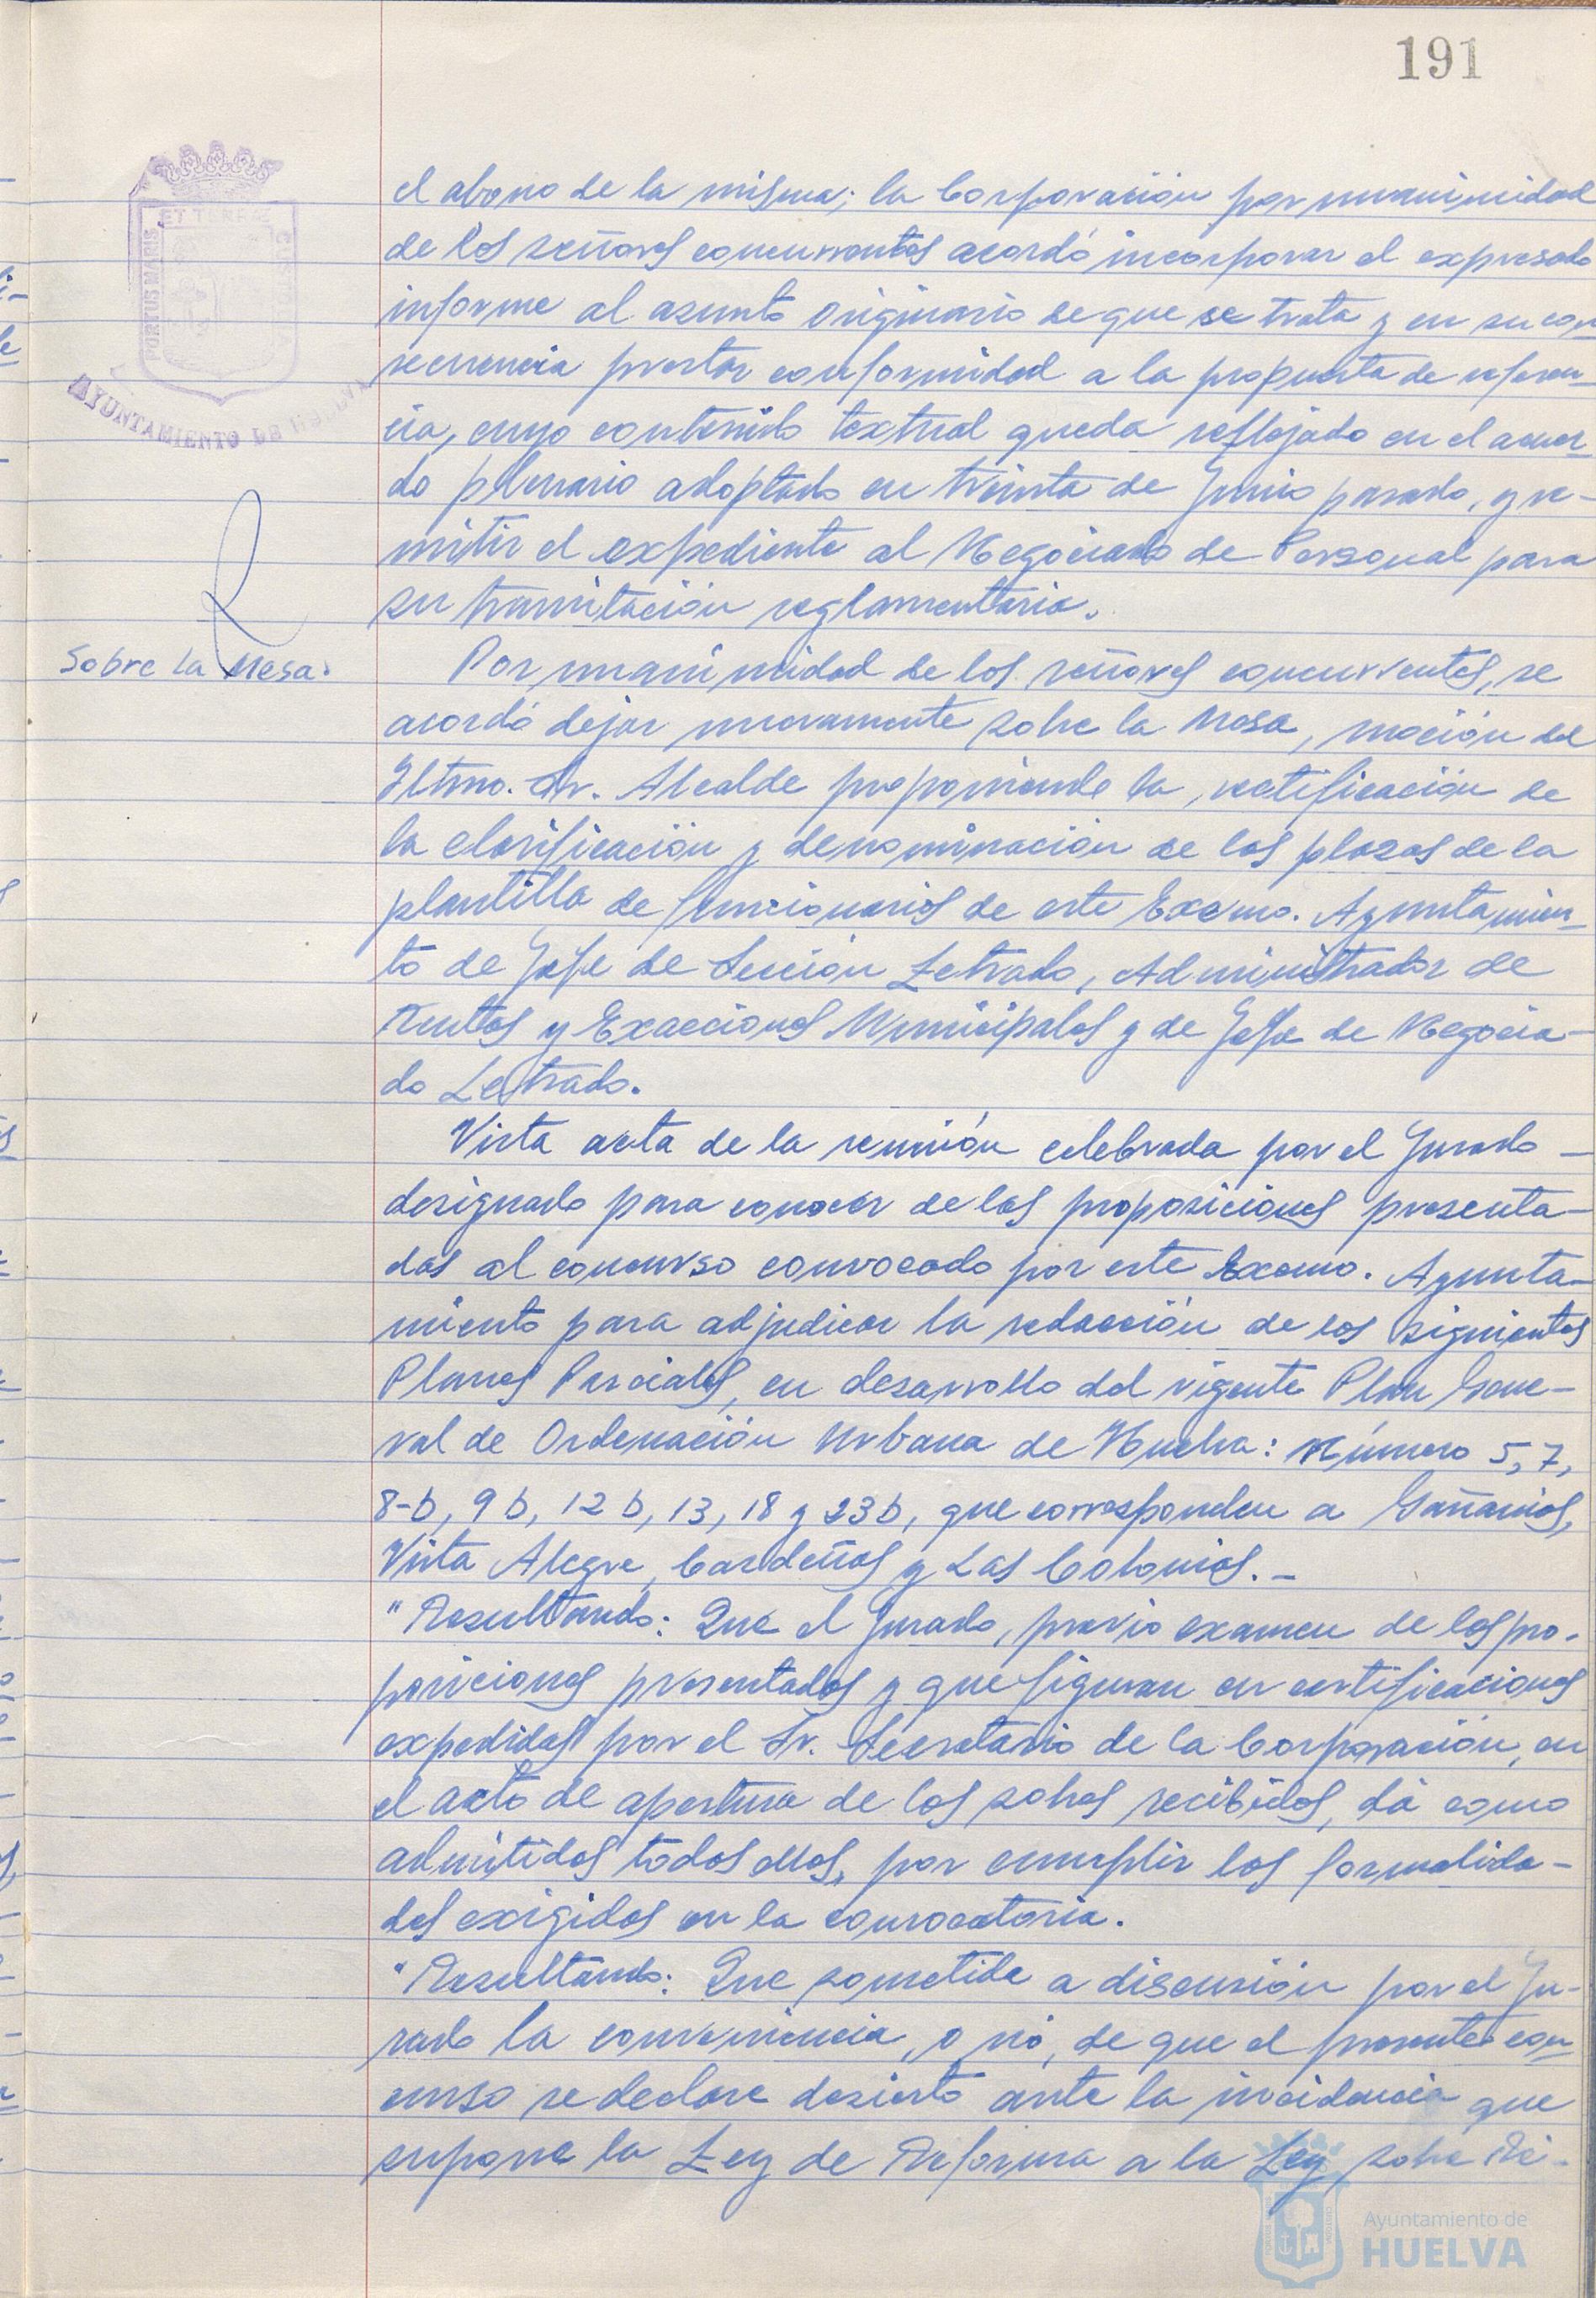 191
PORTUS MARIS ET TERRAE CUSTODIA
AYUNTAMIENTO DE HUELVA
el abono de la misma; la Corporación por unanimidad
de los señores concurrentes acordó incorporar el expresado
informe al asunto originario de que se trata y en su con
secuencia prestar conformidad a la propuesta de referen-
cia, cuyo contenido textual queda reflejado en el acuer-
do plenario adoptado en treinta de Junio pasado, y re-
mitir el expediente al Negociado de Personal para
su tramitación reglamentaria.
Sobre la Mesa.
Por unanimidad de los señores concurrentes, se
acordó dejar nuevamente sobre la Mesa, moción del
Iltmo. Sr. Alcalde proponiendo la rectificación de
la clasificación y denominación de las plazas de la
plantilla de funcionarios de este Excmo. Ayuntamien-
to de Jefe de Sección Letrado, Administrador de
Rentas y Exacciones Municipales y de Jefe de Negocia-
do Letrado.
Vista acta de la reunión celebrada por el Jurado
designado para conocer de las proposiciones presenta-
das al concurso convocado por este Excmo. Ayunta-
miento para adjudicar la redacción de los siguientes
Planes Parciales, en desarrollo del vigente Plan Gene-
ral de Ordenación Urbana de Huelva: Número 5, 7,
8-b, 9 b, 12 b, 13, 18 y 23 b, que corresponden a Gañanías,
Vista Alegre, Cardeñas y Las Colonias. -
"Resultando: Que el Jurado, previo examen de las pro-
posiciones presentadas y que figuran en certificaciones
expedidas por el Sr. Secretario de la Corporación, en
el acto de apertura de los sobres recibidos, dá como
admitidas todas ellas, por cumplir las formalida-
des exigidas en la convocatoria.
"Resultando: Que sometida a discusión por el Ju-
rado la conveniencia, o nó, de que el presente con
curso se declare desierto ante la incidencia que
supone la Ley de Reforma a la Ley sobre Ré-
Ayuntamiento de
HUELVA